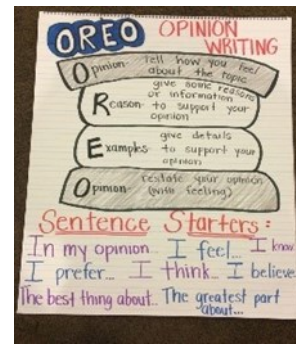 OREO OPINION
WRITING
Opinion- Tell how you feel
about the topic
give some reasons
or information
Reason- to support your
opinion
give details
Examples- to support your
opinion
restate your opinion
Opinion- (with feeling)
Sentence Starters:
In my opinion... I feel... I know
I prefer... I think... I believe
The best thing about... The greatest part
about...